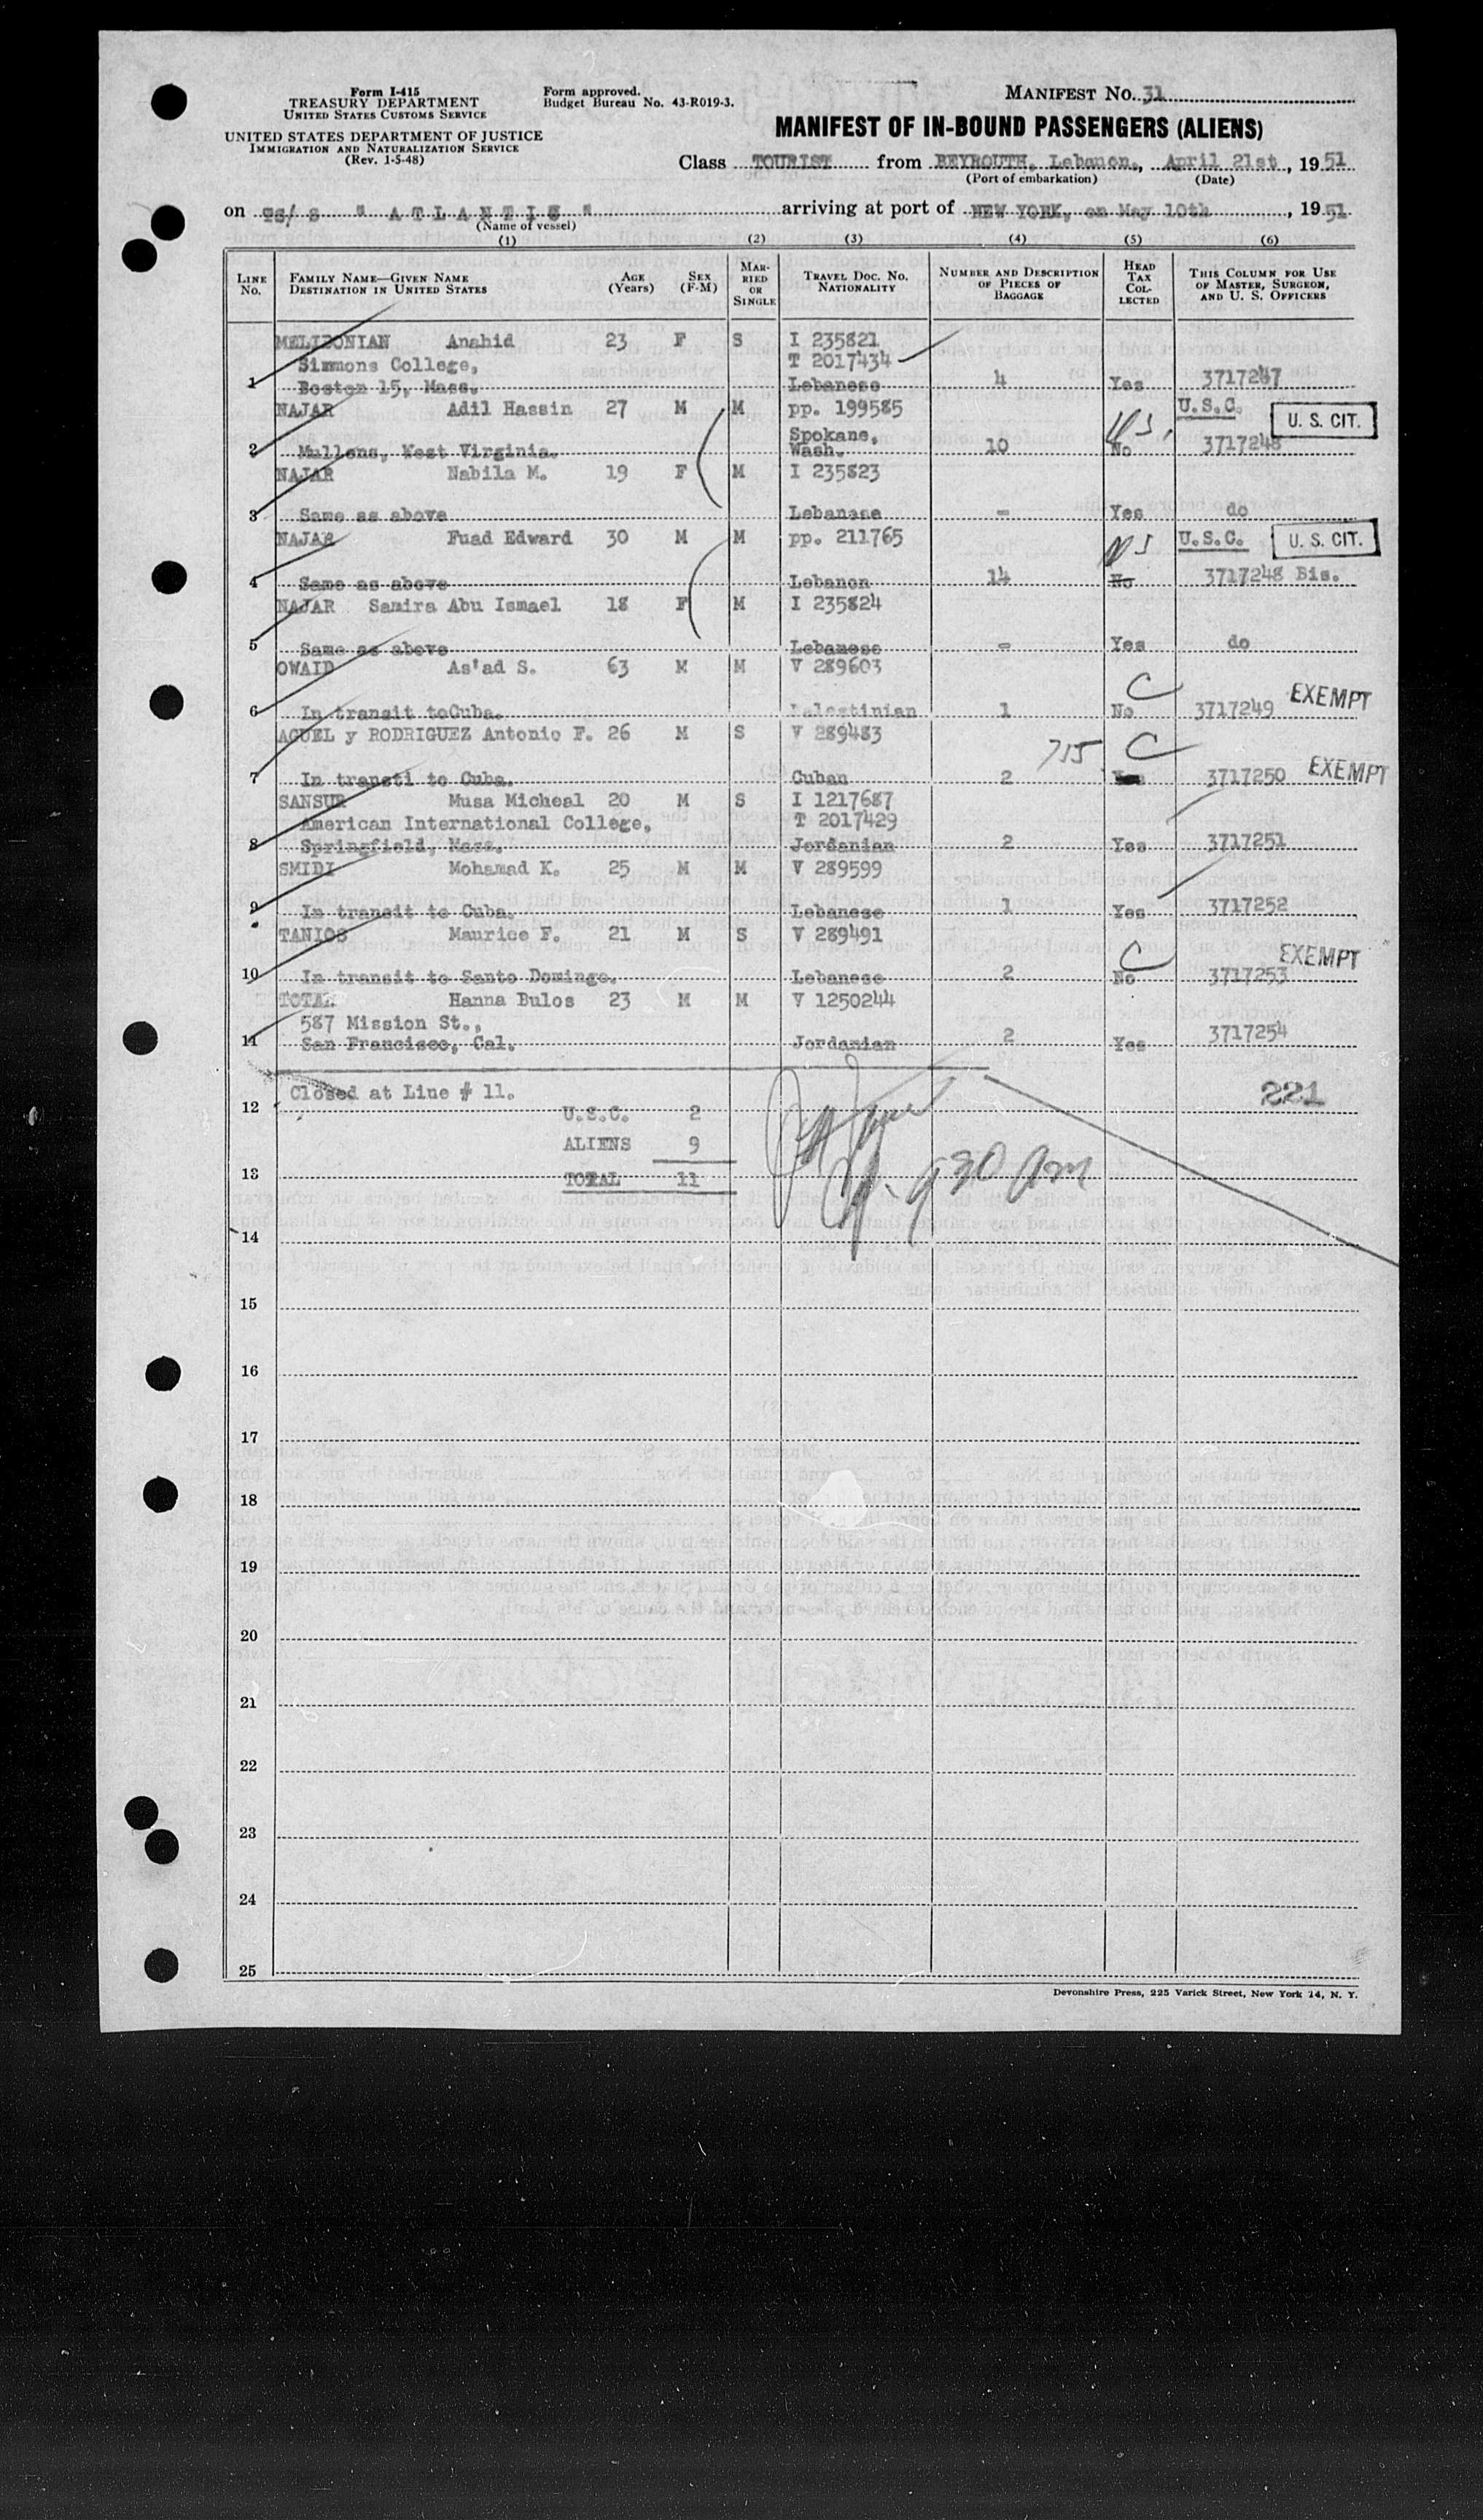 Form I-415
TREASURY DEPARTMENT
UNITED STATES CUSTOMS SERVICE
UNITED STATES DEPARTMENT OF JUSTICE
IMMIGRATION AND NATURALIZATION SERVICE
(Rev. 1-5-48)
Form approved.
Budget Bureau No. 43-R019-3.
MANIFEST NO. 31
MANIFEST OF IN-BOUND PASSENGERS (ALIENS)
Class TOURIST from BEYROUTH, Lebanon, April 21st, 1951
(Port of embarkation) (Date)
on TS/S "ATLANTIS" arriving at port of NEW YORK, on May 10th, 1951
(Name of vessel)
(1) (2) (3) (4) (5) (6)
LINE NO. FAMILY NAME—GIVEN NAME DESTINATION IN UNITED STATES AGE (Years) SEX (F-M) MARRIED OR SINGLE TRAVEL DOC. NO. NATIONALITY NUMBER AND DESCRIPTION OF PIECES OF BAGGAGE HEAD TAX COLLECTED THIS COLUMN FOR USE OF MASTER, SURGEON, AND U. S. OFFICERS
MELIDONIAN Anahid 23 F S I 235821
Simmons College, T 2017434
1 Boston 15, Mass. Lebanese 4 Yes 3717247
NAJAR Adil Hassin 27 M M pp. 199585 U.S.C. U. S. CIT.
Spokane,
2 Mullens, West Virginia. Wash. 10 No 3717248
NAJAR Nabila M. 19 F M I 235823
3 Same as above Lebanase - Yes do
NAJAR Fuad Edward 30 M M pp. 211765 U.S.C. U. S. CIT.
4 Same as above Lebanon 14 No 3717248 Bis.
NAJAR Samira Abu Ismael 18 F M I 235824
5 Same as above Lebanese - Yes do
OWAID As'ad S. 63 M M V 289603
C
6 In transit toCuba. Palestinian 1 No 3717249 EXEMPT
AGUEL y RODRIGUEZ Antonio F. 26 M S V 289483
715 C
7 In transti to Cuba. Cuban 2 3717250 EXEMPT
SANSUR Musa Micheal 20 M S I 1217687
American International College, T 2017429
8 Springfield, Mass. Jordanian 2 Yes 3717251
SMIDI Mohamad K. 25 M M V 289599
9 In transit to Cuba. Lebanese 1 Yes 3717252
TANIOS Maurice F. 21 M S V 289491
C EXEMPT
10 In transit to Santo Domingo. Lebanese 2 No 3717253
TOTAH Hanna Bulos 23 M M V 1250244
587 Mission St.,
11 San Francisco, Cal. Jordanian 2 Yes 3717254
Closed at Line # 11. 221
12 U.S.C. 2
ALIENS 9
930 am
13 TOTAL 11
14
15
16
17
18
19
20
21
22
23
24
25
Devonshire Press, 225 Varick Street, New York 14, N. Y.